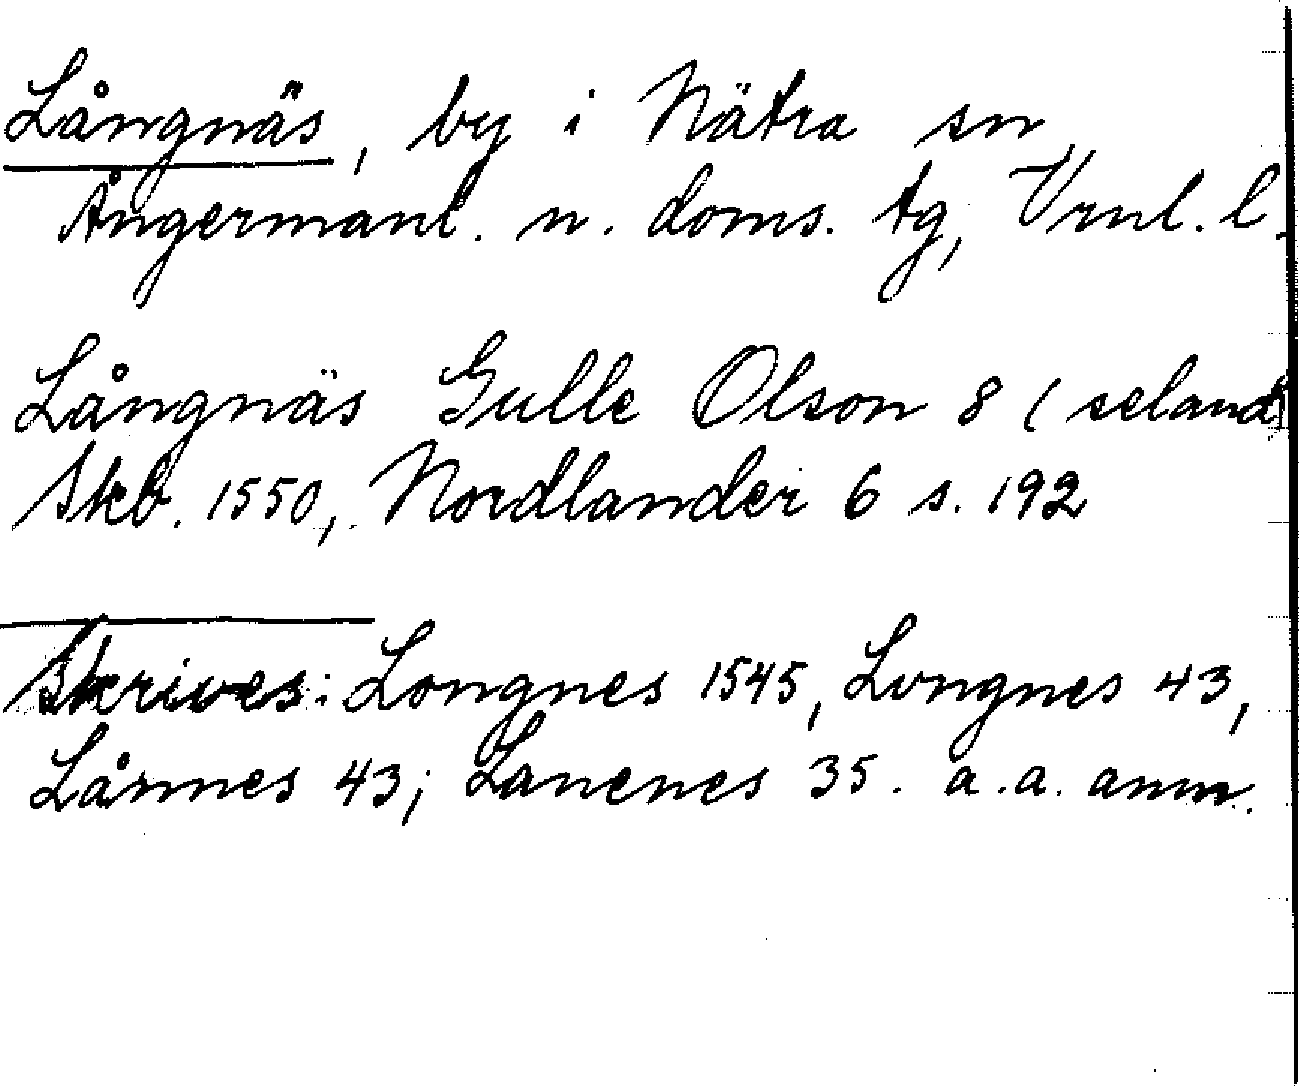 Långnäs, by i Nätra sn,
Ångermanl. n. doms. tg, Vrnl. l.
Långnäs Gulle Olson 8 (seland)
Skb. 1550, Nordlander 6 s. 192
Skrives: Longnes 1545, Longnes 43,
Lånnes 43; Lanenes 35. a.a. anm.